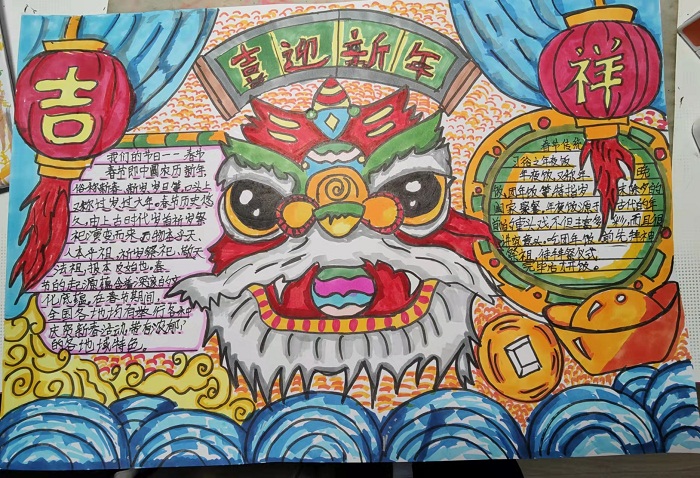 喜迎新年
吉
祥
我们的节日——春节
春节即中国农历新年
俗称新春、新岁、岁旦等,口头上
又称过岁、过大年。春节历史悠
久,由上古时代岁首祈岁祭
祀演变而来。万物本乎天、
人本乎祖、祈岁祭祀、敬天
法祖、报本反始也。春
节的起源蕴含着深邃的文
化底蕴,在春节期间,
全国各地均有举行各种
庆贺新春活动,带有浓郁
的各地域特色
春节传统
习俗之年夜饭
年夜饭又称年
饭、团年饭等,特指岁
阖家聚餐。年夜饭源于古代的年
祭祖、待拜祭仪式
完毕后才开饭。